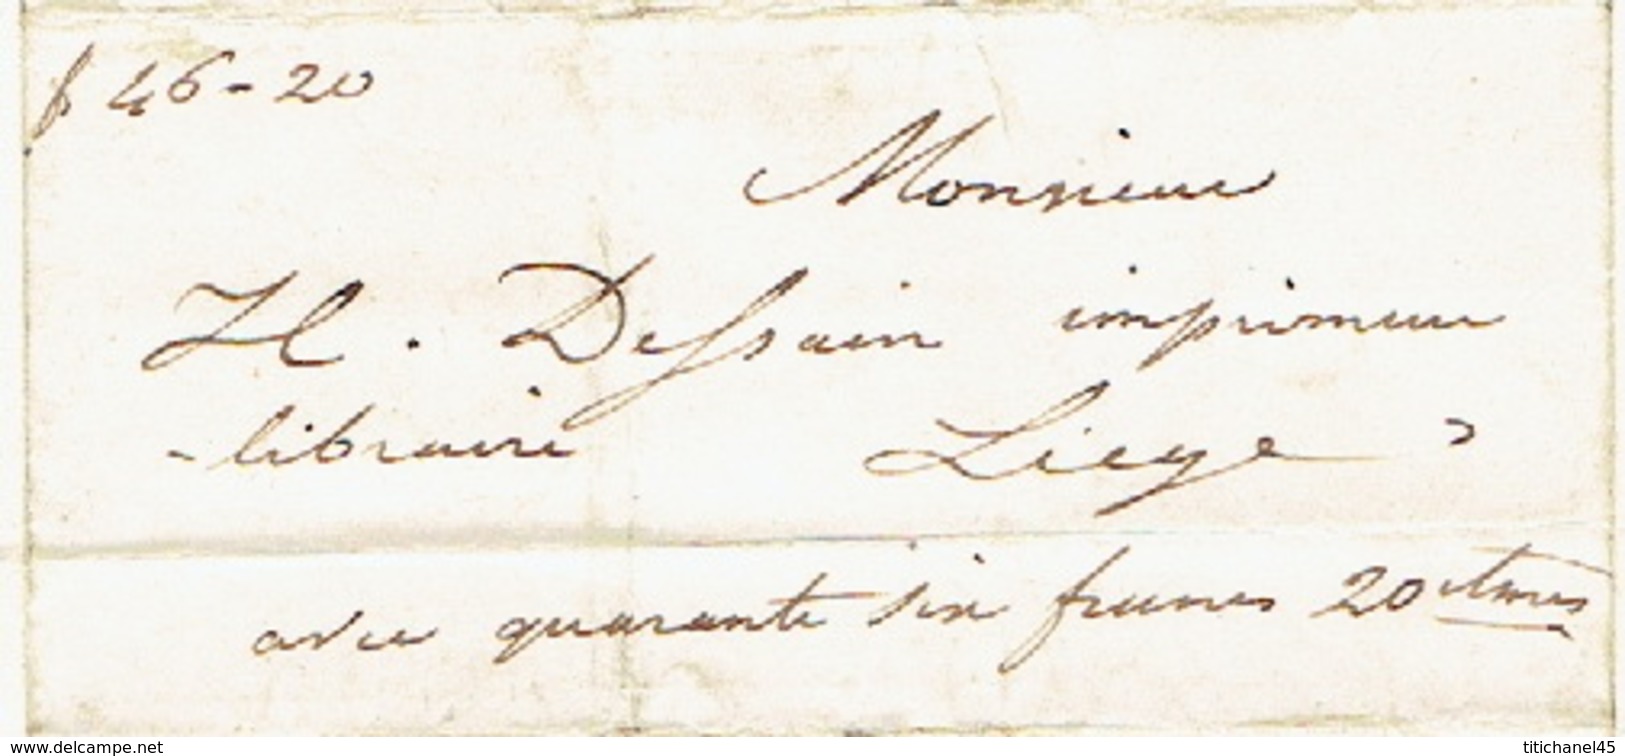 f 46-20
Monsieur
H. Dessain imprimeur
-libraire Liege
avec quarante six francs 20 ctmes
www.delcampe.net titichanel45